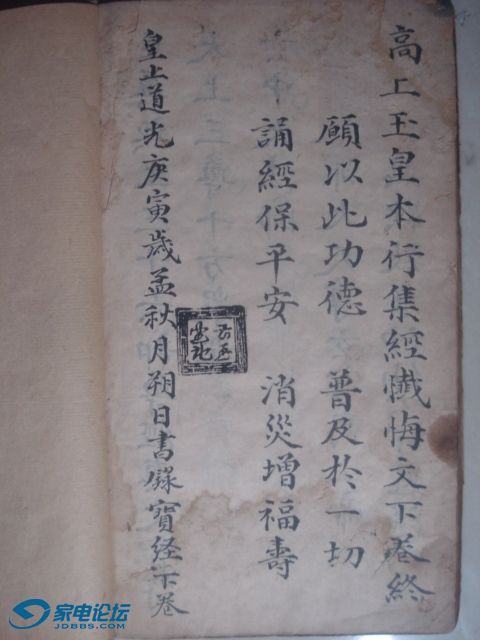 高上玉皇本行集經懺悔文下卷終
願以此功德 普及於一切
誦經保平安 消災增福壽
皇上道光庚寅歲孟秋月朔日書錄寶经下卷
家电论坛
JDBBS.COM